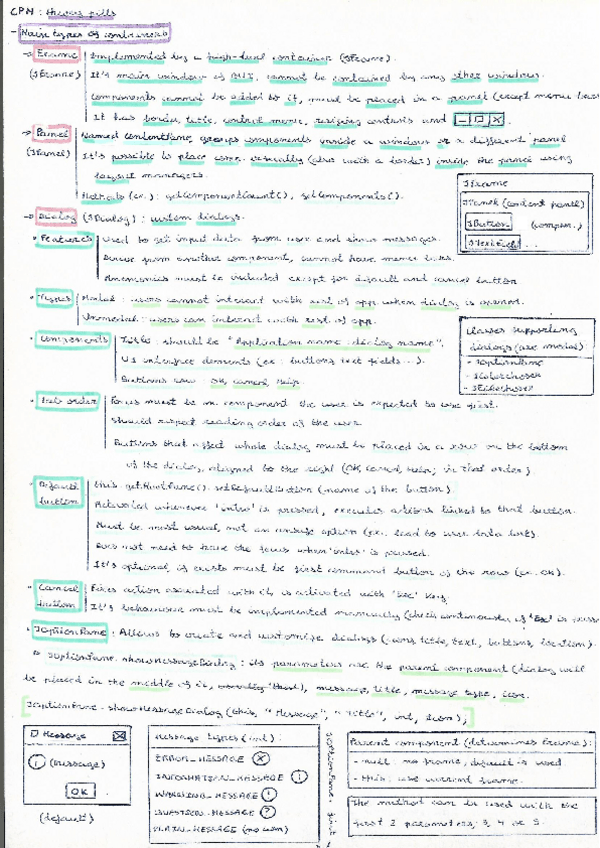 CPM: theory pills
- Main types of containers
→ Frame (JFrame)
Implemented by a high-level container (JFrame).
It's main window of GUI, cannot be contained by any other window.
Components cannot be added to it, must be placed in a panel (except menu bars
It has border, title, control menu, resizing controls and
→ Panel (JPanel)
Named contentPane, groups components inside a window or a different panel
It's possible to place comp. visually (also with a border) inside the panel using
layout managers.
Methods (ex.): getComponentCount(), getComponents().
JFrame
JPanel (content panel)
JButton (compon.)
JTextField ...
→ Dialog (JDialog): custom dialogs.
· Features
Used to get input data from user and show messages.
from another component, cannot have menu bars.
Mnemonics must be included except for default and cancel button
· Types
Modal: users cannot interact with rest of app. when dialog is opened.
Unmodal: users can interact with rest of app.
· Components
Title: should be "Application name: dialog name".
UI interface elements (ex: buttons, text fields...).
Buttons row: OK, cancel, help.
Classes supporting
dialogs (are modal):
- JOptionPane
- JColorChooser
- JFileChooser
· Tab order
Focus must be on component the user is expected to use first.
Should respect reading order of the user.
Buttons that affect whole dialog must be placed in a row on the bottom
of the dialog, aligned to the right (OK, cancel, help; in that order).
· Default button
this.getRootPane().setDefaultButton (name of the button).
Activated whenever 'intro' is pressed, executes actions linked to that button.
Must be most usual, not an unsafe option (ex. lead to user data lost).
Does not need to have the focus when 'intro' is pressed.
It's optional, if exists must be first command button of the row (ex. OK).
· Cancel button
action associated with it is activated with 'Esc' key.
It's behaviour must be implemented manually (check continuously if 'Esc' is
· JOptionPane: Allows to create and customize dialogs (icons, title, text, buttons, location).
JOptionPane.showMessageDialog: its parameters are the parent component (dialog will
be placed in the middle of it, message, title, message type, icon.
JOptionPane.showMessageDialog (this, "Message", "Title", int, Icon);
Message
i (message)
OK
(default)
Message types (int):
ERROR_MESSAGE X
INFORMATION_MESSAGE i
WARNING_MESSAGE !
QUESTION_MESSAGE ?
PLAIN_MESSAGE (no icon)
JOptionPane.
Parent component (determines frame):
- null: no frame, default is used.
- this: use current frame.
The method can be used with the
first 2 parameters, 3, 4 or 5.